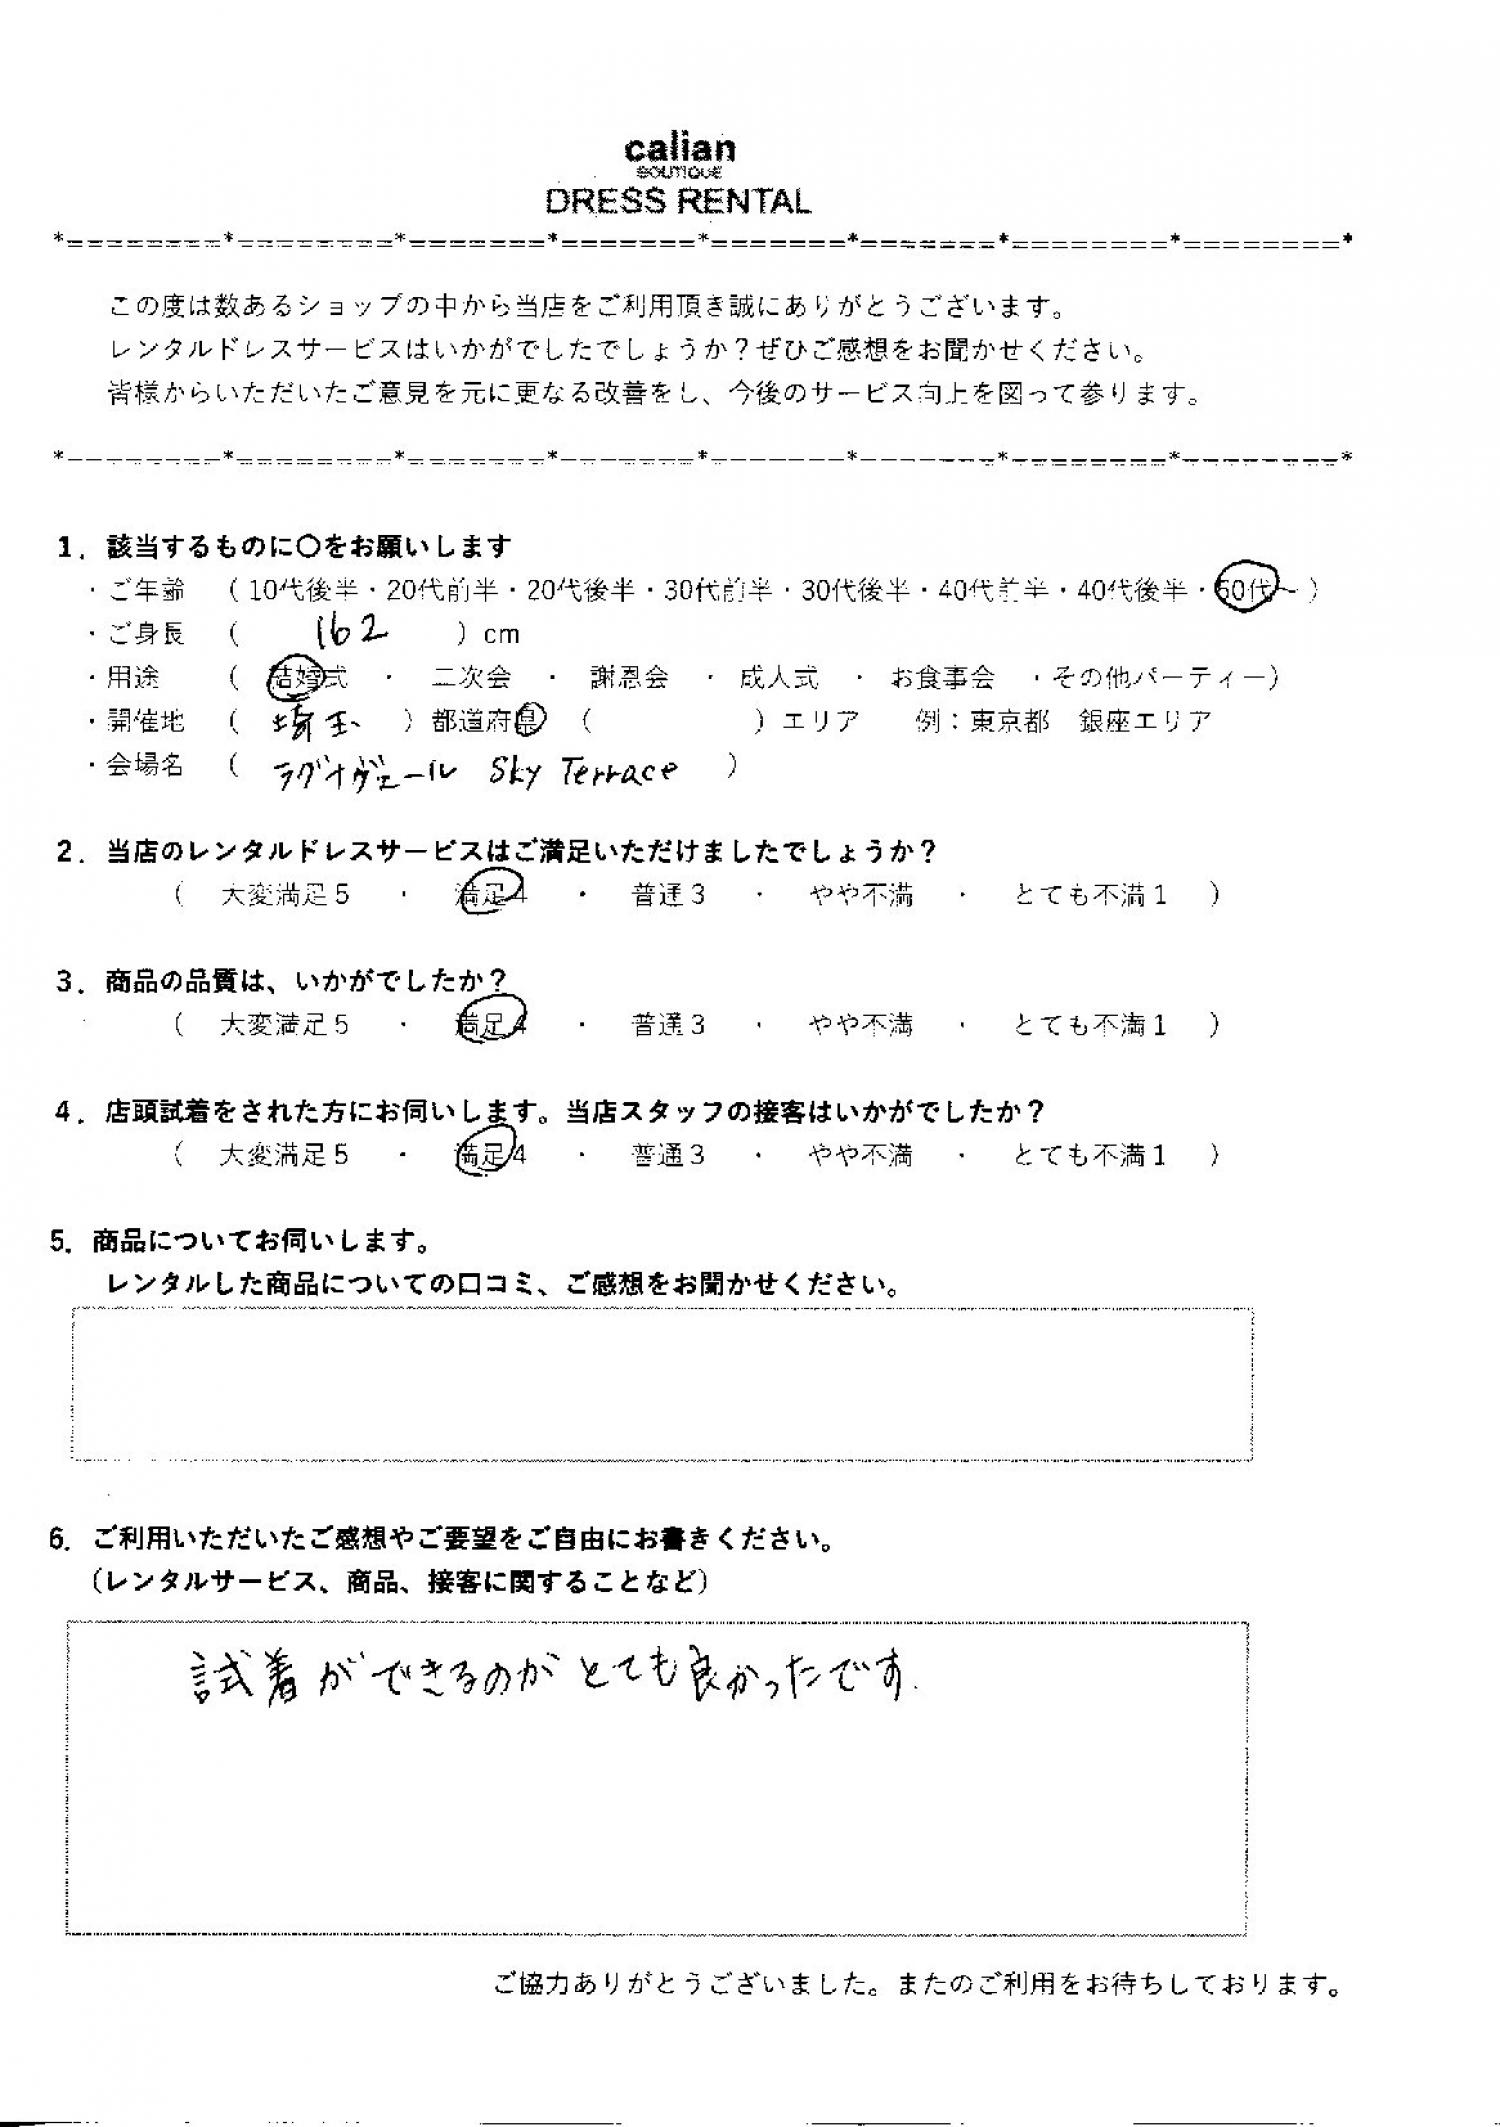 calian
BOUTIQUE
DRESS RENTAL
*========*========*=======*=======*=======*=======*========*========*
この度は数あるショップの中から当店をご利用頂き誠にありがとうございます。
レンタルドレスサービスはいかがでしたでしょうか？ぜひご感想をお聞かせください。
皆様からいただいたご意見を元に更なる改善をし、今後のサービス向上を図って参ります。
*========*========*=======*=======*=======*=======*========*========*
1．該当するものに〇をお願いします
・ご年齢 （ 10代後半・20代前半・20代後半・30代前半・30代後半・40代前半・40代後半・50代～ ）
・ご身長 （ 162 ）cm
・用途 （ 結婚式 ・ 二次会 ・ 謝恩会 ・ 成人式 ・ お食事会 ・その他パーティー）
・開催地 （ 埼玉 ）都道府県 （ ）エリア 例：東京都 銀座エリア
・会場名 （ ラグナヴェール Sky Terrace ）
2．当店のレンタルドレスサービスはご満足いただけましたでしょうか？
（ 大変満足5 ・ 満足4 ・ 普通3 ・ やや不満 ・ とても不満1 ）
3．商品の品質は、いかがでしたか？
（ 大変満足5 ・ 満足4 ・ 普通3 ・ やや不満 ・ とても不満1 ）
4．店頭試着をされた方にお伺いします。当店スタッフの接客はいかがでしたか？
（ 大変満足5 ・ 満足4 ・ 普通3 ・ やや不満 ・ とても不満1 ）
5．商品についてお伺いします。
レンタルした商品についての口コミ、ご感想をお聞かせください。
6．ご利用いただいたご感想やご要望をご自由にお書きください。
（レンタルサービス、商品、接客に関することなど）
試着ができるのがとても良かったです.
ご協力ありがとうございました。またのご利用をお待ちしております。